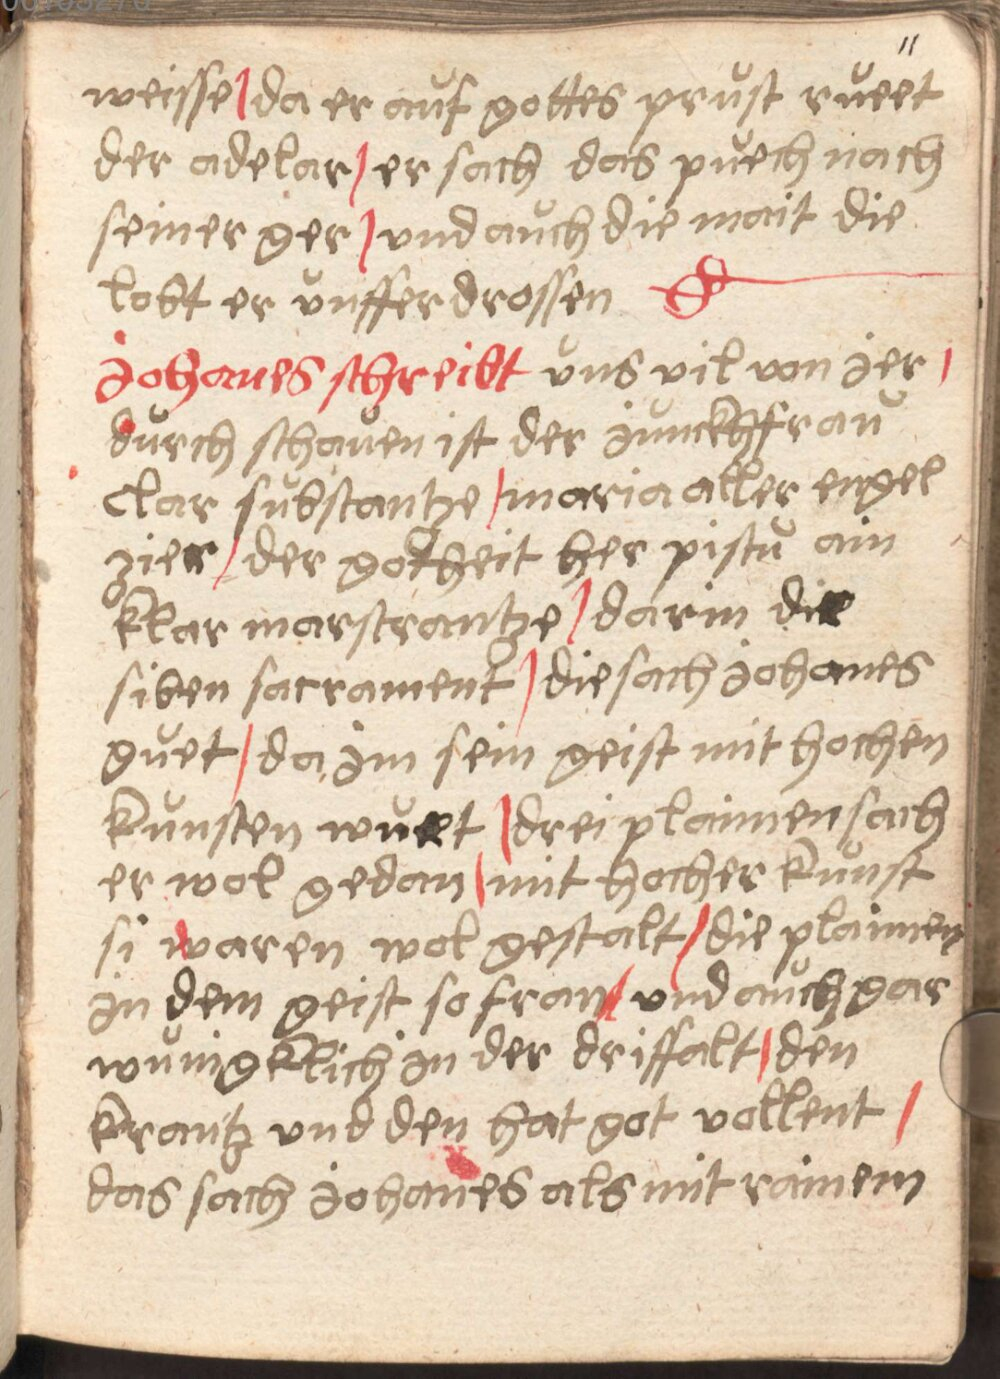 11
weisse / da er auf gottes prust rueet
der adelar / er sach das puech nach
seiner ger / vnd auch die mait die
lobt er vnfferdrossen
Johanes schreibt vns vil von jer /
durch schauen ist der junckhfrau
Clar substantze / maria aller engel
zier / der gotheit her pistu ain
klar marstrantze / darin die
siben sacrament / die sach johanes
guet / da im sein geist mit hochen
kunsten wuet / drei plaimen sach
er wol gedan / mit hocher kunst
si waren wol gestalt / die plaimen
in dem geist so fran / vnd auch gar
wunigklich in der driffalt / den
krantz vnd den hat got vollent /
das sach johanes als mit rainem